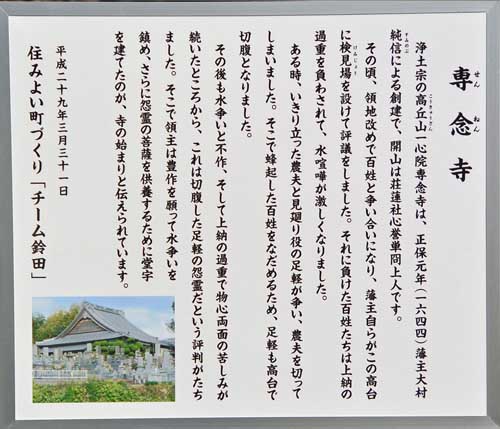 専念寺
せんねん
浄土宗の高丘山一心院専念寺は、正保元年(一六四四)藩主大村
純信による創建で、開山は荘蓮社心誉単冏上人です。
すみのぶ
その頃、領地改めで百姓と争い合いになり、藩主自らがこの高台
に検見場を設けて評議をしました。それに負けた百姓たちは上納の
けみじょう
過重を負わされて、水喧嘩が激しくなりました。
ある時、いきり立った農夫と見廻り役の足軽が争い、農夫を切って
しまいました。そこで蜂起した百姓をなだめるため、足軽も高台で
切腹となりました。
その後も水争いと不作、そして上納の過重で物心両面の苦しみが
続いたところから、これは切腹した足軽の怨霊だという評判がたち
ました。そこで領主は豊作を願って水争いを
鎮め、さらに怨霊の菩薩を供養するために堂宇
を建てたのが、寺の始まりと伝えられています。
平成二十九年三月三十一日
住みよい町づくり「チーム鈴田」